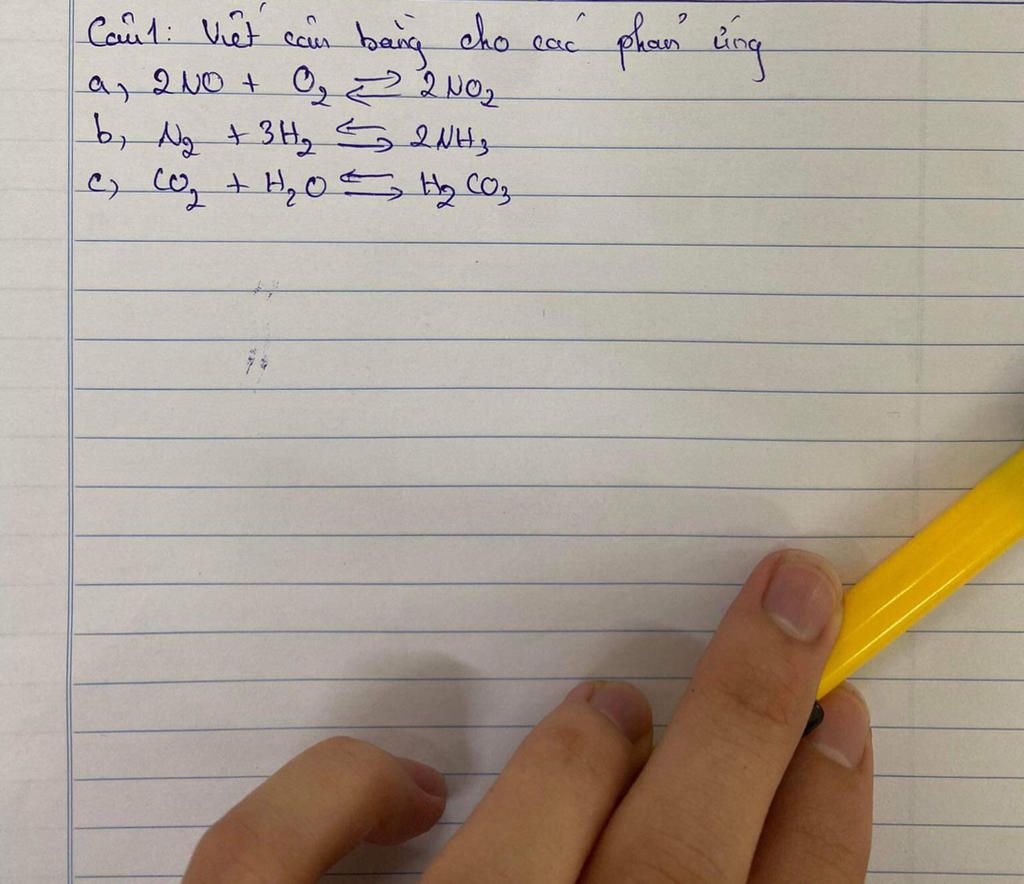 Câu1: Viết cân bằng cho các phản ứng
a, 2NO + O₂ ⇌ 2NO₂
b, N₂ + 3H₂ ⇆ 2NH₃
c, CO₂ + H₂O ⇆ H₂CO₃